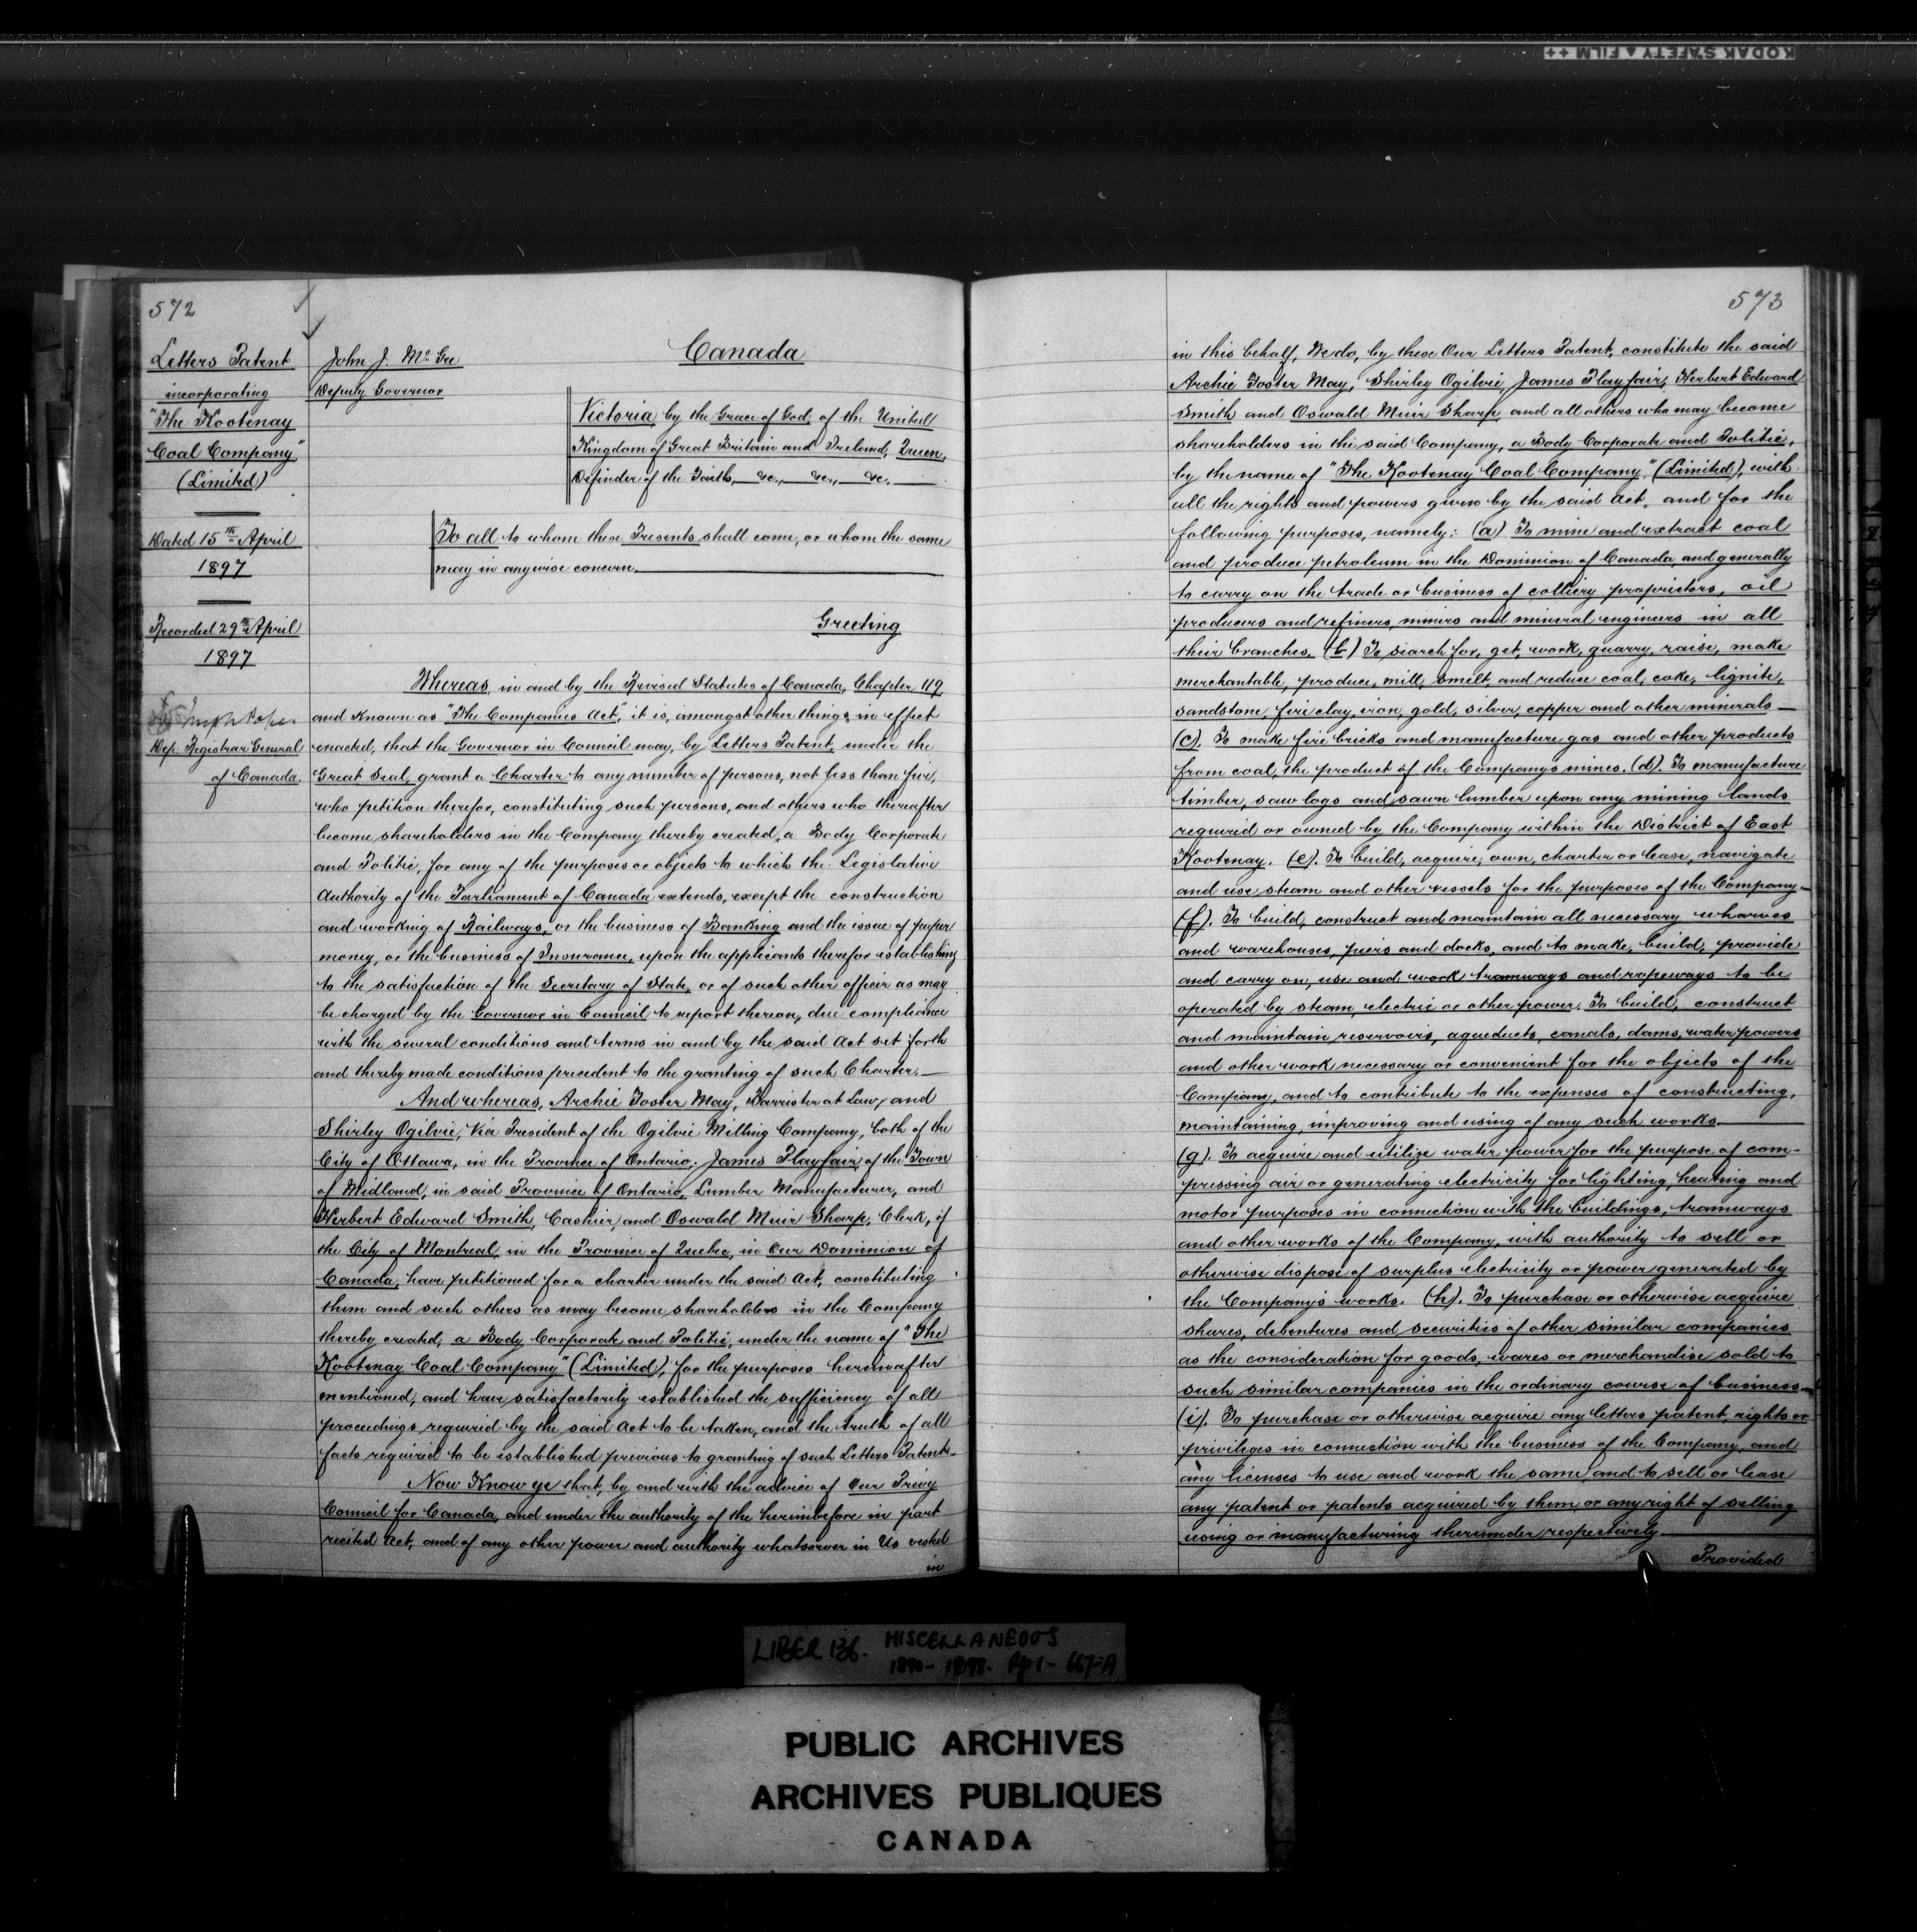 KODAK SAFETY FILM ++
572
Letters Patent
incorporating
"The Kootenay
Coal Company"
(Limited)
Dated 15th April
1897
Recorded 29th April
1897
Joseph Pope
Dep. Registrar General
of Canada.
John J. McGee
Deputy Governor
Canada
Victoria, by the Grace of God, of the United
Kingdom of Great Britain and Ireland, Queen,
Defender of the Faith, &c., &c., &c.
To all to whom these Presents shall come, or whom the same
may in anywise concern.
Greeting
Whereas, in and by the Revised Statutes of Canada, Chapter 119
and known as "The Companies Act", it is, amongst other things, in effect
enacted, that the Governor in Council may, by Letters Patent, under the
Great Seal, grant a Charter to any number of persons, not less than five,
who petition therefor, constituting such persons, and others who thereafter
become shareholders in the Company thereby created, a Body Corporate
and Politic, for any of the purposes or objects to which the Legislative
Authority of the Parliament of Canada extends, except the construction
and working of Railways, or the business of Banking and the issue of paper
money, or the business of Insurance, upon the applicants therefor establishing
to the satisfaction of the Secretary of State, or of such other officer as may
be charged by the Governor in Council to report thereon, due compliance
with the several conditions and terms in and by the said Act set forth
and thereby made conditions precedent to the granting of such Charter.
And whereas, Archie Foster May, Barrister at Law, and
Shirley Ogilvie, Vice President of the Ogilvie Milling Company, both of the
City of Ottawa, in the Province of Ontario; James Playfair, of the Town
of Midland, in said Province of Ontario, Lumber Manufacturer, and
Herbert Edward Smith, Cashier, and Oswald Muir Sharp, Clerk, of
the City of Montreal, in the Province of Quebec, in Our Dominion of
Canada, have petitioned for a charter under the said Act, constituting
them and such others as may become shareholders in the Company
thereby created, a Body Corporate and Politic, under the name of "The
Kootenay Coal Company" (Limited), for the purposes hereinafter
mentioned, and have satisfactorily established the sufficiency of all
proceedings required by the said Act to be taken, and the truth of all
facts required to be established previous to granting of such Letters Patent.
Now Know ye that, by and with the advice of Our Privy
Council for Canada, and under the authority of the hereinbefore in part
recited Act, and of any other power and authority whatsoever in Us vested
in
573
in this behalf, We do, by these Our Letters Patent, constitute the said
Archie Foster May, Shirley Ogilvie, James Playfair, Herbert Edward
Smith and Oswald Muir Sharp and all others who may become
shareholders in the said Company, a Body Corporate and Politic,
by the name of "The Kootenay Coal Company," (Limited), with
all the rights and powers given by the said Act, and for the
following purposes, namely: (a) To mine and extract coal
and produce petroleum in the Dominion of Canada and generally
to carry on the trade or business of colliery proprietors, oil
producers and refiners, miners and mineral engineers in all
their branches. (b) To search for, get, work, quarry, raise, make
merchantable, produce, mill, smelt, and reduce coal, coke, lignite,
sandstone, fire clay, iron, gold, silver, copper and other minerals
(c). To make fire bricks and manufacture gas and other products
from coal, the product of the Company's mines. (d). To manufacture
timber, saw logs and sawn lumber upon any mining lands
required or owned by the Company within the District of East
Kootenay. (e). To build, acquire, own, charter or lease, navigate
and use steam and other vessels for the purposes of the Company.
(f). To build, construct and maintain all necessary wharves
and warehouses, piers and docks, and to make, build, provide
and carry on, use and work tramways and ropeways to be
operated by steam, electric or other power. To build, construct
and maintain reservoirs, aqueducts, canals, dams, water powers
and other work necessary or convenient for the objects of the
Company, and to contribute to the expenses of constructing,
maintaining, improving and using of any such works.
(g). To acquire and utilize water power for the purpose of com-
pressing air or generating electricity for lighting, heating and
motor purposes in connection with the buildings, tramways
and other works of the Company, with authority to sell or
otherwise dispose of surplus electricity or power generated by
the Company's works. (h). To purchase or otherwise acquire
shares, debentures and securities of other similar companies
as the consideration for goods, wares or merchandise sold to
such similar companies in the ordinary course of business
(i). To purchase or otherwise acquire any letters patent, rights or
privileges in connection with the business of the Company, and
any licenses to use and work the same, and to sell or lease
any patent or patents acquired by them, or any right of selling
using or manufacturing thereunder respectively
Provided
LIBER 136. MISCELLANEOUS
1890-1898. Pp 1-667-A
PUBLIC ARCHIVES
ARCHIVES PUBLIQUES
CANADA